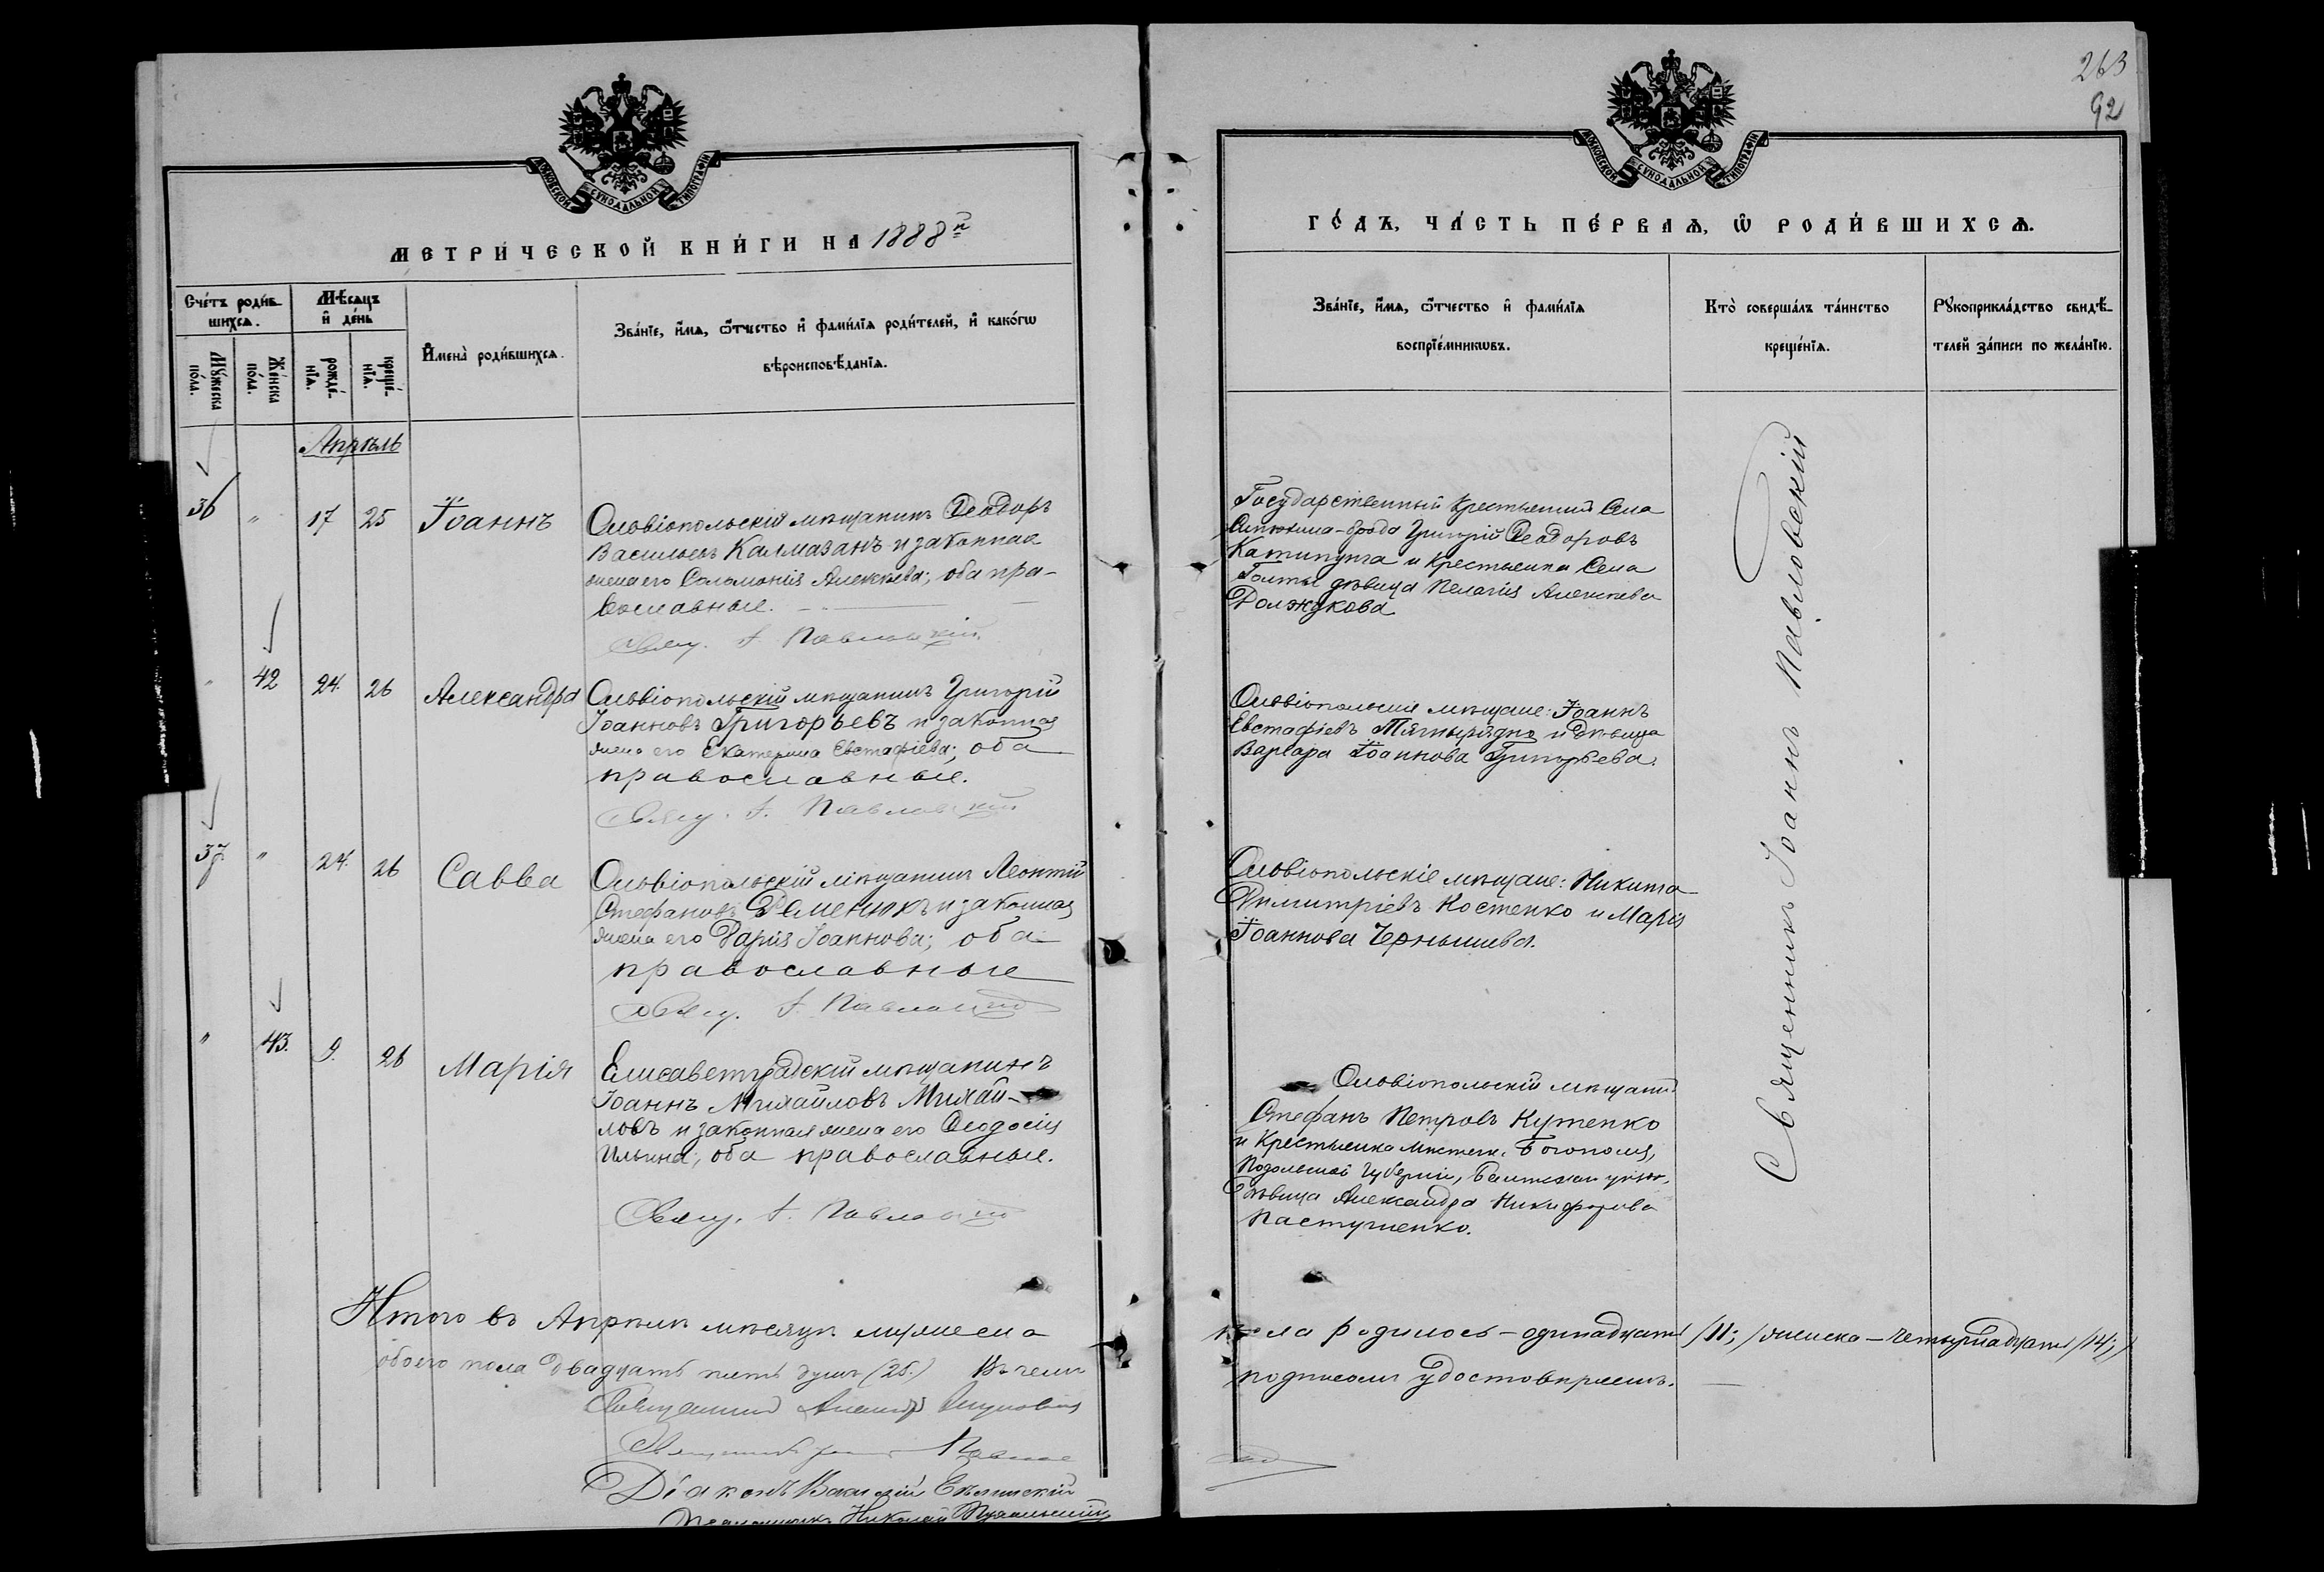 263
92
МОСКОВСКОЙ СѴНОДАЛЬНОЙ ТИПОГРАФІИ
МЕТРИ́ЧЕСКОЙ КНИ́ГИ НА 1888 й
Сче́тъ роди́в-
шихсѧ.
Мѣ́сѧцъ
и҆ де́нь
Мꙋ́жеска
по́ла.
Же́нска
по́ла.
рожде́-
нїѧ.
креще́-
нїѧ.
И҆мена̀ роди́вшихсѧ.
Зва́нїе, и҆́мѧ, ѻ҆́тчество и҆ фами́лїѧ роди́телей, и҆ како́гѡ
вѣроисповѣ́данїѧ.
Апрѣль
36 " 17 25 Іоаннъ
Ольвіопольскій мѣщанинъ Ѳеодоръ
Васильевъ Калмазанъ и законная
жена его Соломонія Алексѣева; оба пра-
вославные.
Свящ. І. Павловскій
" 42 24. 26 Александра
Ольвіопольскій мѣщанинъ Григорій
Іоанновъ Григорьевъ и законная
жена его Екатерина Евстафіева; оба
православные.
Свящ. І. Павловскій
37. " 24. 26 Савва
Ольвіопольскій мѣщанинъ Леонтій
Стефановъ Ременюкъ и законная
жена его Дарія Іоаннова; оба
православные
Свящ. І. Павловскій
" 43. 9. 26 Марія
Елисаветградскій мѣщанинъ
Іоаннъ Михайловъ Михай-
ловъ и законная жена его Ѳеодосія
Ильина; оба православные.
Свящ. І. Павловскій
Итого въ Апрѣлѣ мѣсяцѣ мужеска
обоего пола двадцать пять душъ (25.) Въ чемъ
Священникъ
Священникъ
Діаконъ Василій
Николай
МОСКОВСКОЙ СѴНОДАЛЬНОЙ ТИПОГРАФІИ
ГО́ДЪ, ЧА́СТЬ ПЕ́РВАѦ, Ѡ҆ РОДИ́ВШИХСѦ.
Зва́нїе, и҆́мѧ, ѻ҆́тчество и҆ фами́лїѧ
воспрїе́мникѡвъ.
Кто̀ соверша́лъ та́инство
креще́нїѧ.
Рꙋкоприкла́дство свидѣ́-
телей за́писи по жела́нїю.
Государственный крестьянинъ Села
Григорій Ѳеодоровъ
и крестьянка Села
Голты дѣвица Пелагія Алексѣева
Должукова
Ольвіопольскіе мѣщане: Іоаннъ
Евстафіевъ и дѣвица
Варвара Іоаннова Григорьева.
Ольвіопольскіе мѣщане: Никита
Димитріевъ Костенко и Марія
Іоаннова Чернышева.
Ольвіопольскій мѣщанинъ
Стефанъ Петровъ Кутенко
и крестьянка мѣстеч. Богополя,
Подольской губерніи, Балтскаго уѣзда,
дѣвица Александра Никифорова
Пастушенко.
Священникъ Іоаннъ Павловскій
пола родилось – одинадцать /11;/ женска – четырнадцать /14;/
подписомъ удостовѣряемъ.